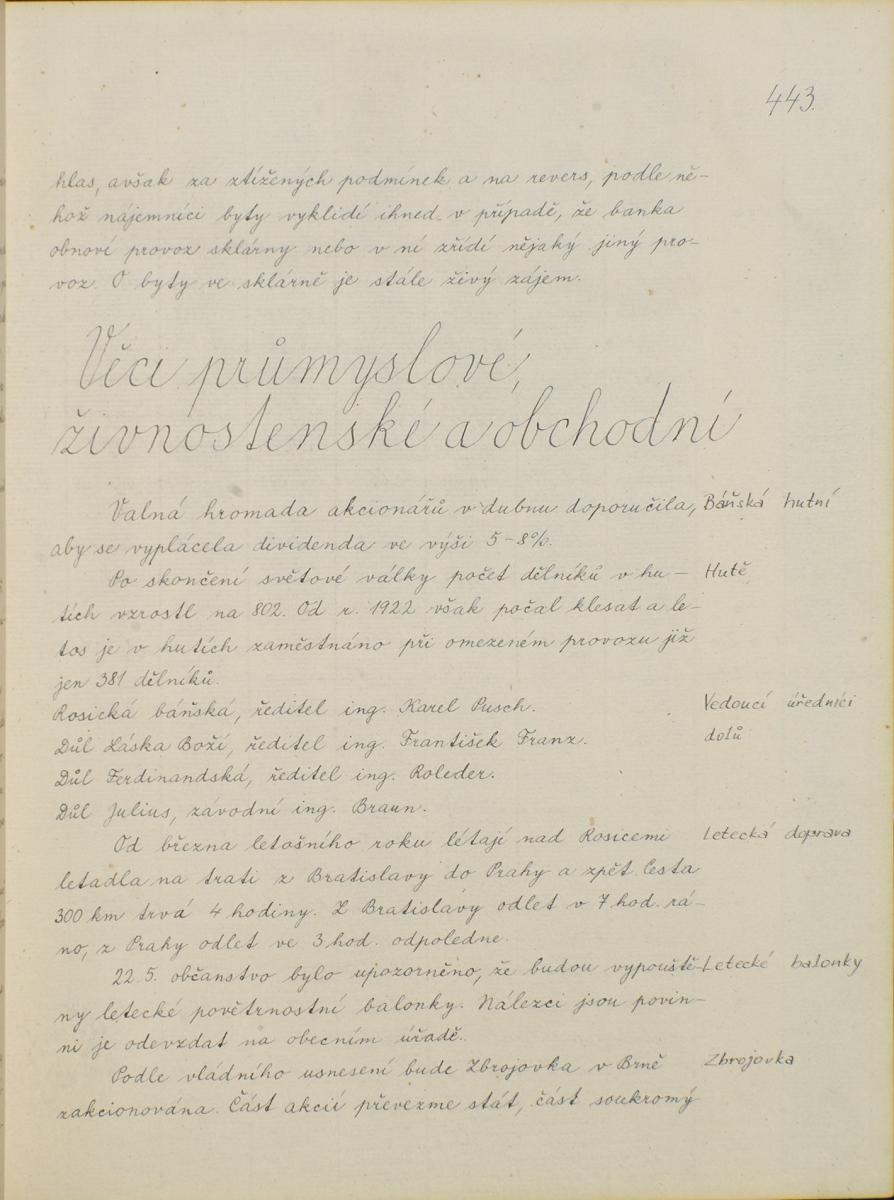 443.
hlas, avšak za ztížených podmínek a na revers, podle ně-
hož nájemníci byty vyklidí ihned v případě, že banka
obnoví provoz sklárny nebo v ní zřídí nějaký jiný pro-
voz. O byty ve sklárně je stále živý zájem.
Věci průmyslové,
živnostenské a obchodní
Valná hromada akcionářů v dubnu doporučila, Báňská hutní
aby se vyplácela dividenda ve výši 5-8%.
Po skončení světové války počet dělníků v hu- Hutě
tích vzrostl na 802. Od r. 1922 však počal klesat a le-
tos je v hutích zaměstnáno při omezeném provozu již
jen 381 dělníků.
Rosická báňská, ředitel ing. Karel Pusch. Vedoucí úředníci
Důl Láska Boží, ředitel ing. František Franz. dolů
Důl Ferdinandská, ředitel ing. Roleder.
Důl Julius, závodní ing. Braun.
Od března letošního roku létají nad Rosicemi Letecká doprava
letadla na trati z Bratislavy do Prahy a zpět. Cesta
300 km trvá 4 hodiny. Z Bratislavy odlet v 7 hod. rá-
no, z Prahy odlet ve 3 hod. odpoledne.
22.5. občanstvo bylo upozorněno, že budou vypouště- Letecké balonky
ny letecké povětrnostní balonky. Nálezci jsou povin-
ni je odevzdat na obecním úřadě.
Podle vládního usnesení bude Zbrojovka v Brně Zbrojovka
zakcionována. Část akcií převezme stát, část soukromý